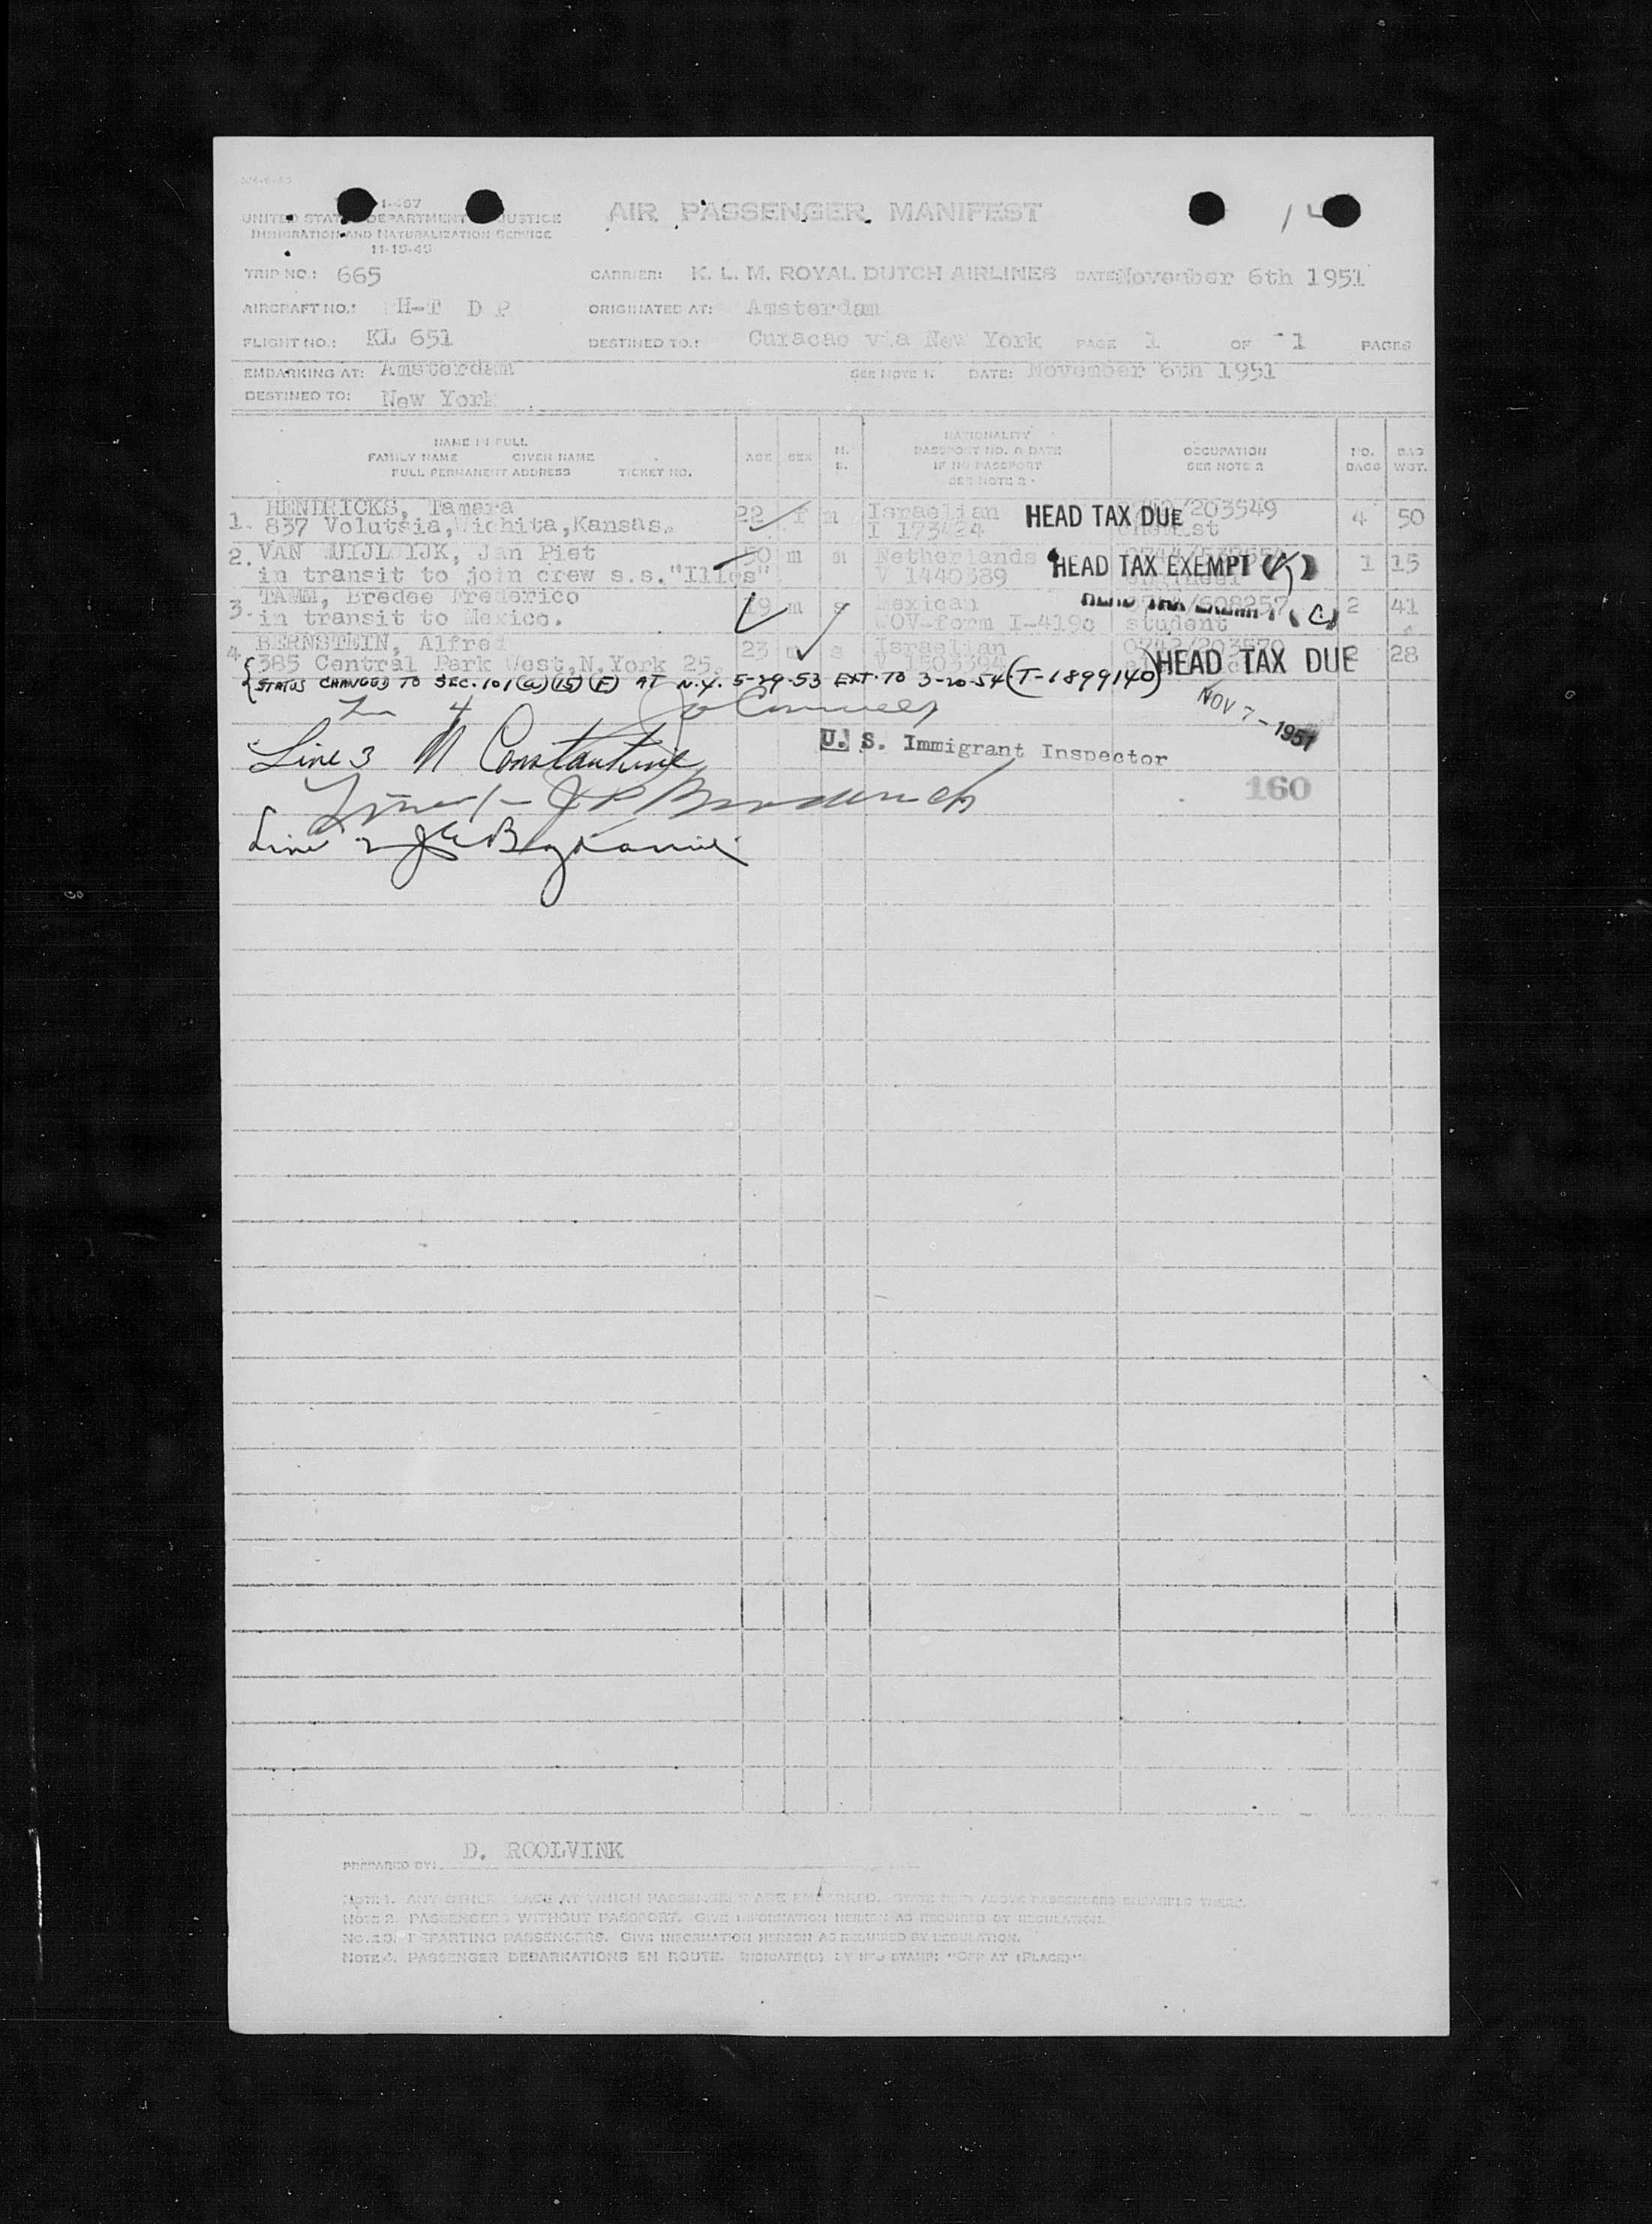 UNITED STATES DEPARTMENT JUSTICE
IMMIGRATION AND NATURALIZATION SERVICE
11-15-45
AIR PASSENGER MANIFEST
TRIP NO.: 665 CARRIER: K. L. M. ROYAL DUTCH AIRLINES DATE: November 6th 1951
AIRCRAFT NO.: H-T D P ORIGINATED AT: Amsterdam
FLIGHT NO.: KL 651 DESTINED TO: Curacao via New York PAGE 1 OF 1 PAGES
EMBARKING AT: Amsterdam SEE NOTE 1. DATE: November 6th 1951
DESTINED TO: New York
NAME IN FULL
FAMILY NAME GIVEN NAME
FULL PERMANENT ADDRESS TICKET NO.
AGE SEX M. S.
NATIONALITY
PASSPORT NO. & DATE
IF NO PASSPORT
SEE NOTE 2
OCCUPATION
SEE NOTE 2
NO. BAGS
BAG WGT.
1. HENDRICKS, Tamara 22 f m Israelian /203549 4 50
837 Volutsia, Wichita, Kansas. I 173424 HEAD TAX DUE chemist
2. VAN JAN Piet 50 m m Netherlands 1 15
in transit to join crew s.s. "Illos" V 1440389 HEAD TAX EXEMPT engineer
3. TAMM, Bredee Frederico 19 m s Mexican /608257 2 41
in transit to Mexico. WOV-form I-419c student
4. BERNSTEIN, Alfred 23 m s Israelian 0742/203570 28
385 Central Park West, N.York 25. V 1503394 HEAD TAX DUE
STATUS CHANGED TO SEC. 101 (a) (15) (F) AT N.Y. 5-29-53 EXT. TO 3-20-54 (T-1899140)
NOV 7 - 1951
U. S. Immigrant Inspector
Line 3 N Constantine
160
Line 2
PREPARED BY: D. ROOLVINK
NOTE 1. ANY OTHER PLACE AT WHICH PASSENGERS ARE EMBARKED.
NOTE 2. PASSENGERS WITHOUT PASSPORT. GIVE INFORMATION HEREON AS REQUIRED BY REGULATION.
DEPARTING PASSENGERS. GIVE INFORMATION HEREON AS REQUIRED BY REGULATION.
NOTE 4. PASSENGER DEBARKATIONS EN ROUTE. INDICATE(D) BY STAMP: "OFF AT (PLACE)"